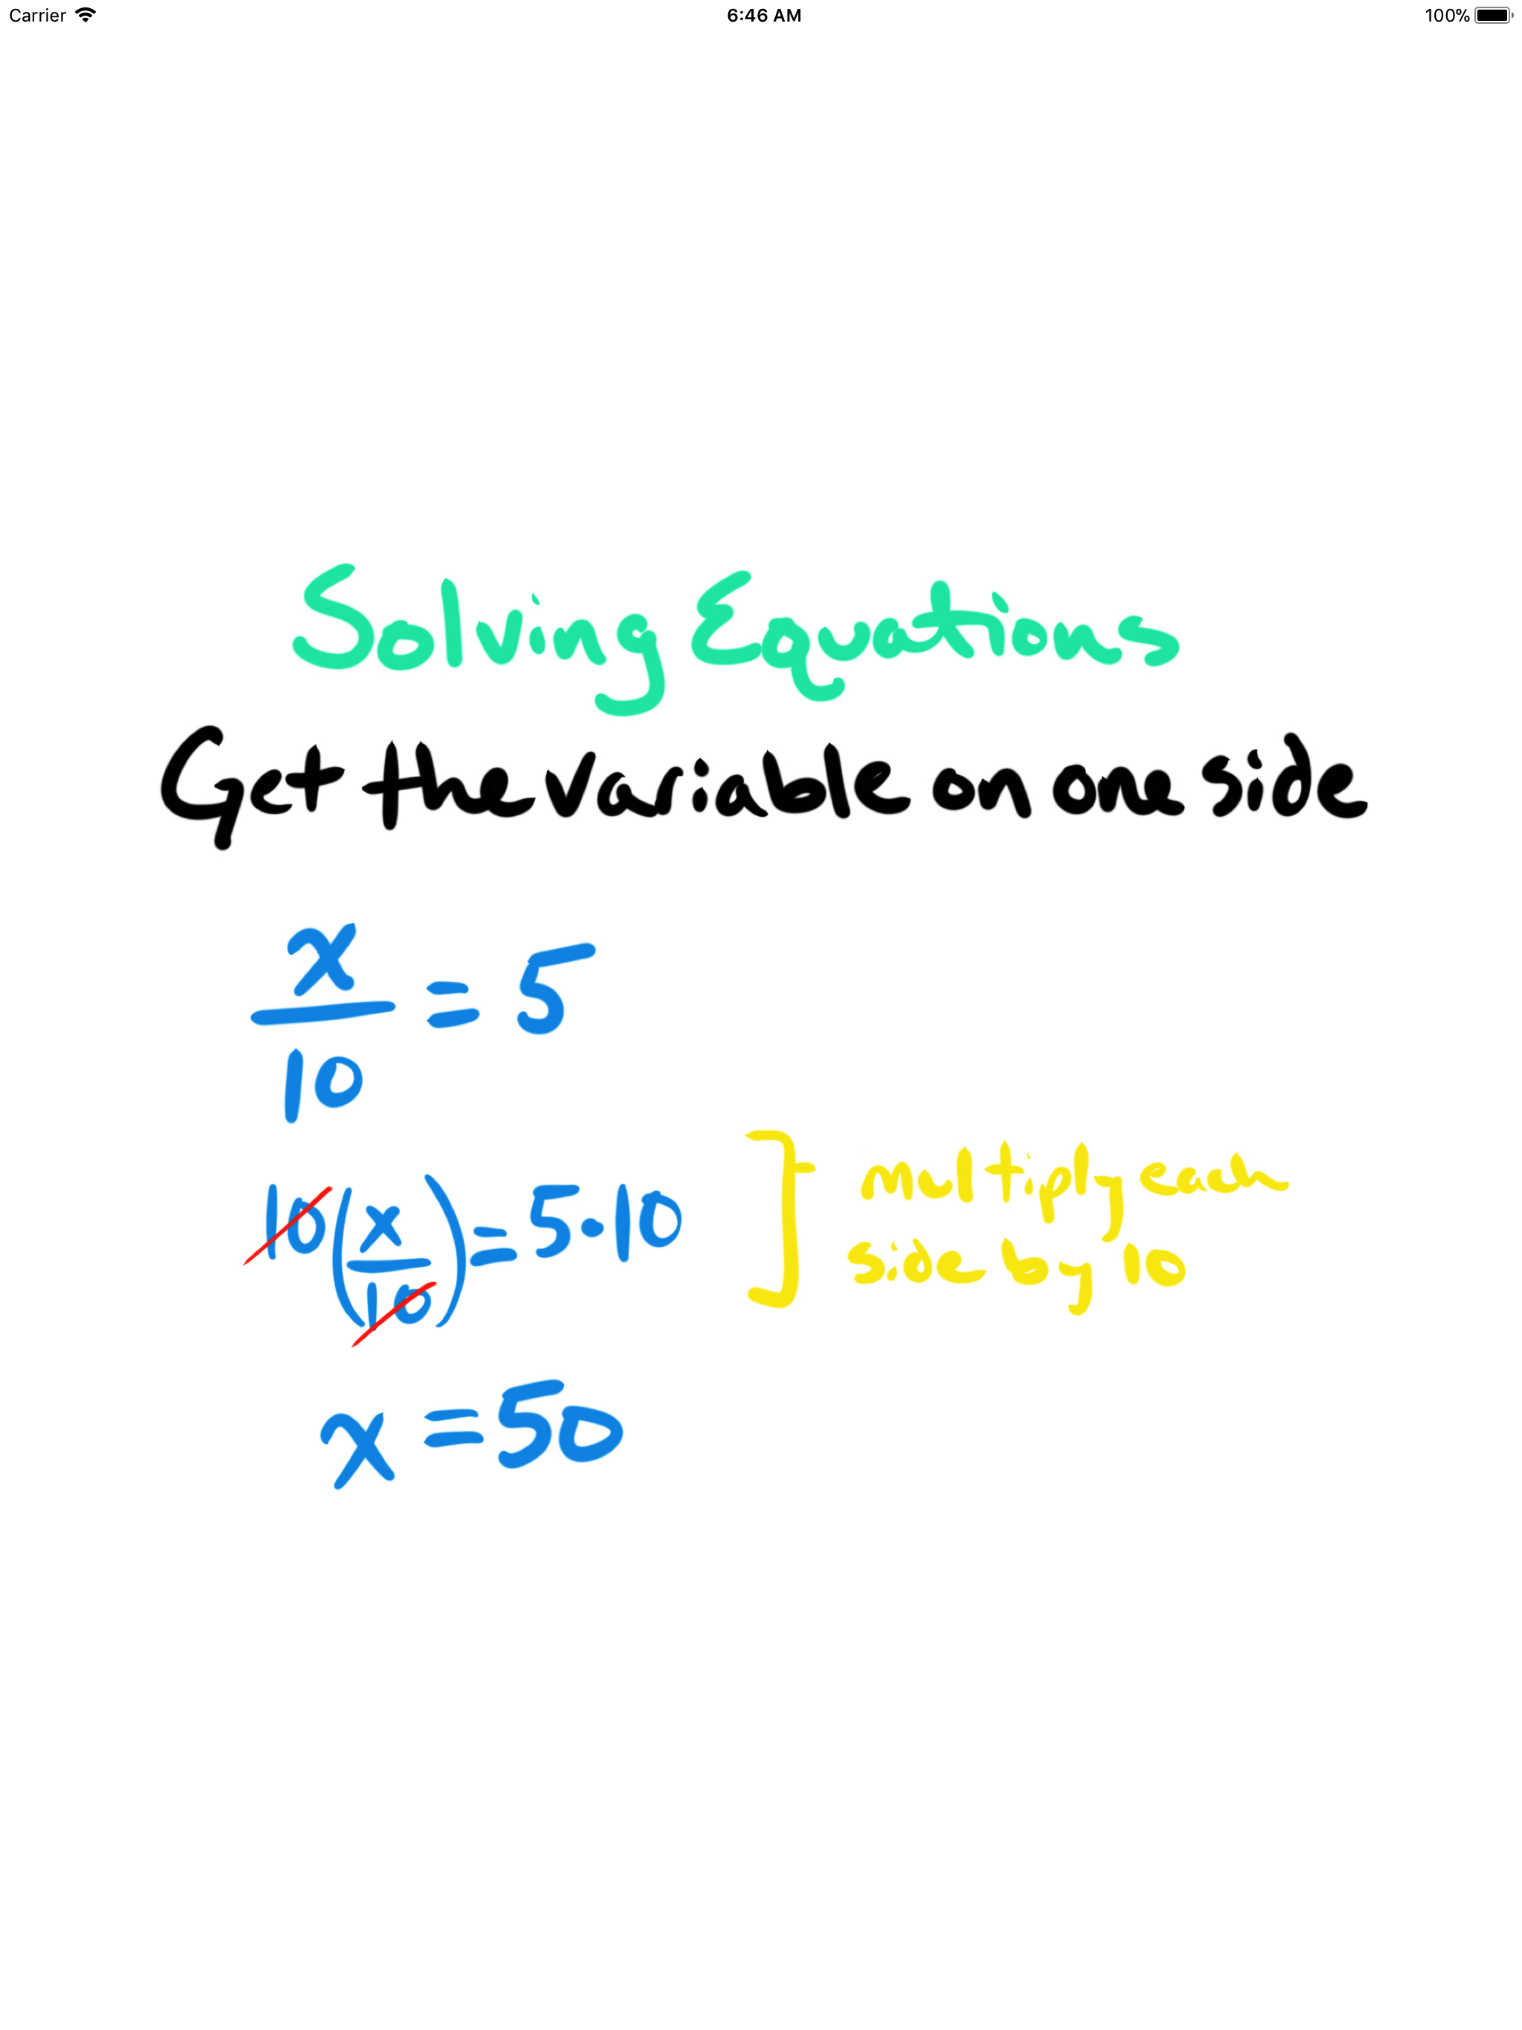 Carrier 6:46 AM 100%
Solving Equations
Get the variable on one side
x/10 = 5
10(x/10) = 5·10 ] multiply each
side by 10
x = 50